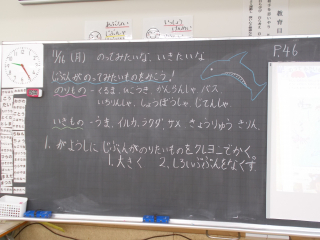 11/16(月) のってみたいな、いきたいな
P.46
じぶんがのってみたいものをかこう!
のりもの-くるま、ひこうき、かんらんしゃ、バス
いちりんしゃ、しょうぼうしゃ、じてんしゃ
いきもの-うま、イルカ、ラクダ、サメ、きょうりゅう、きりん
1. がようしに じぶんがのりたいものをクレヨンでかく。
1. 大きく 2. しろいぶぶんをなくす。